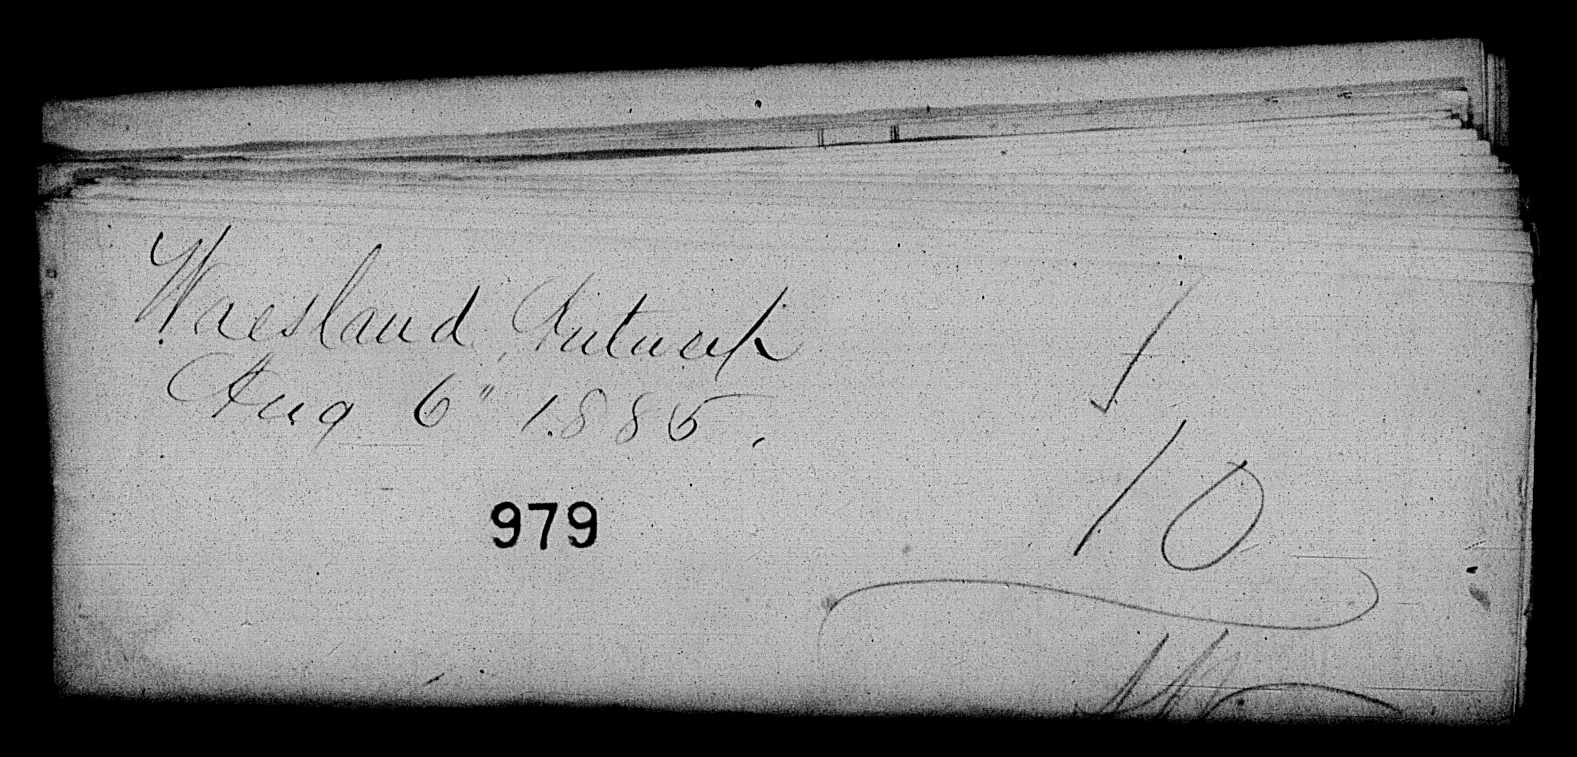 Waesland, Antwerp
Aug 6" 1885.
979
1
10